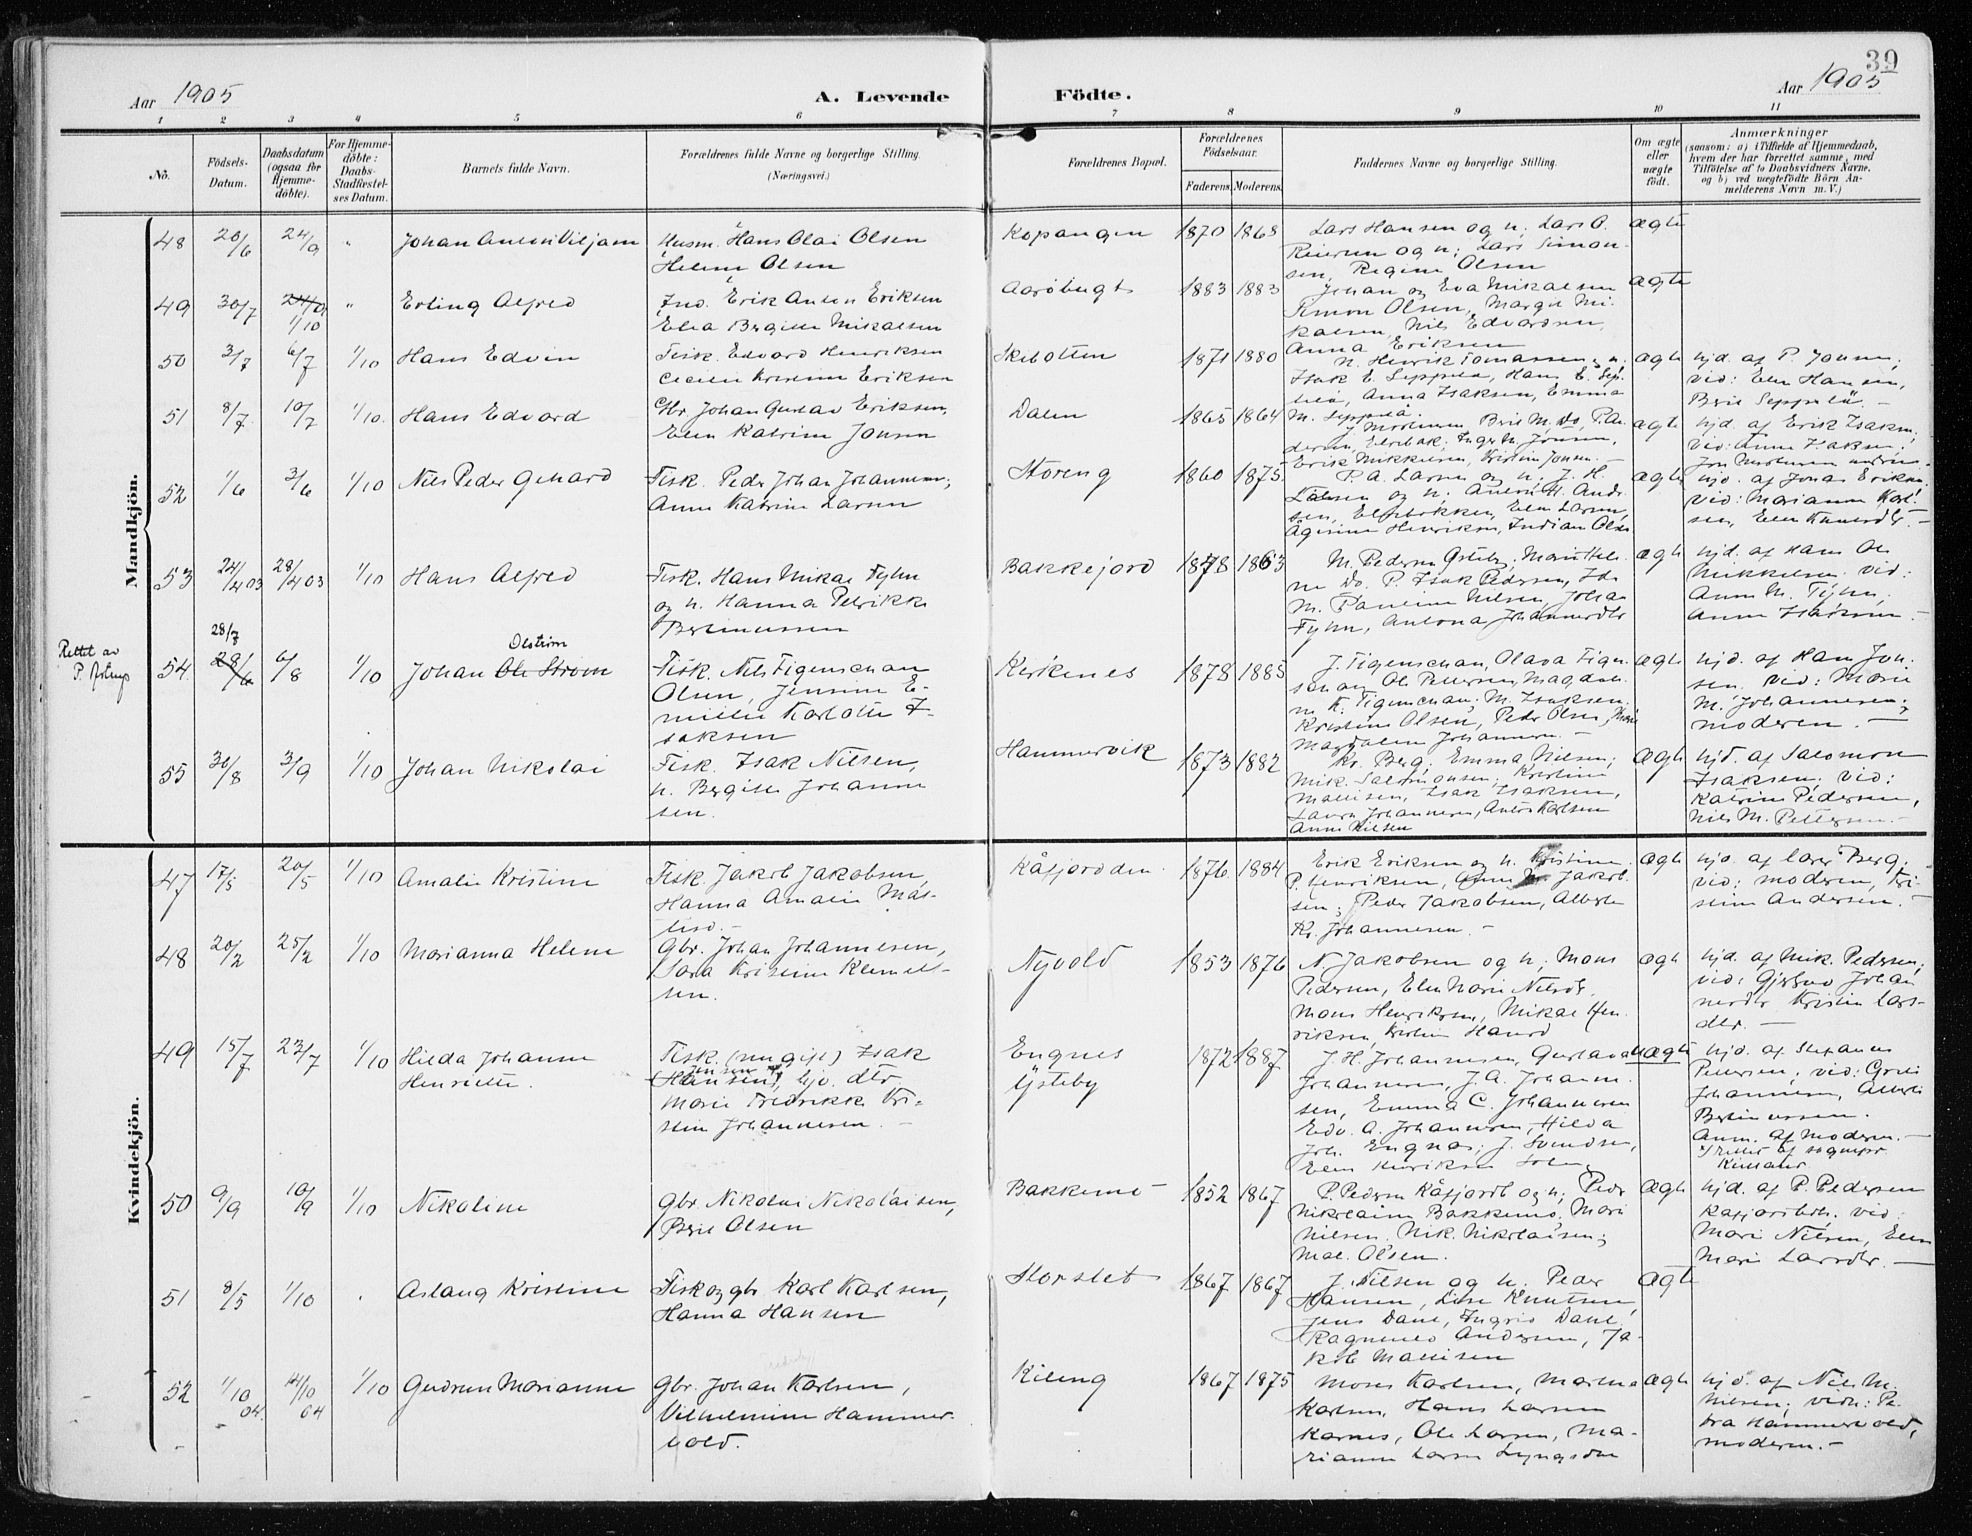 39
Aar 1905
A. Levende Födte.
Aar 1905
1 2 3 4 5 6 7 8 9 10 11
No.
Födsels-Datum.
Daabsdatum (ogsaa for Hjemme-döbte).
For Hjemme-döbte: Daabs-Stadfæstel-ses Datum.
Barnets fulde Navn.
Forældrenes fulde Navne og borgerlige Stilling. (Næringsvei.)
Forældrenes Bopæl.
Forældrenes Födselsaar.
Faderens. Moderens.
Faddernes Navne og borgerlige Stilling.
Om ægte eller uægte födt.
Anmærkninger
(saasom: a) i Tilfælde af Hjemmedaab,
hvem der har forrettet samme, med
Tilföielse af to Daabsvidners Navne,
og b) ved uægtefödte Börn An-
melderens Navn m. V.)
Mandkjön.
48 20/6 24/9 " Johan Anton Viljam
Husm. Hans Olai Olsen
Helene Olsen
Kopangen 1870 1868
Lars Hansen og h; Lars O.
Reiersen og h; Lars Simon-
sen, Regine Olsen
ægte
49 30/7 24/9 1/10 " Erling Alfred
Ind. Erik Anton Eriksen
Elea Bergitte Mikalsen
Aarøbugt 1883 1883
Johan og Eva Mikalsen
Simon Olsen, Margit Mi-
kalsen, Nils Edvardsen,
Anna Eriksen
ægte
50 3/7 6/7 1/10 Hans Edvin
Fisk. Edvard Henriksen
Cecilie Kristine Eriksen
Skibotten 1871 1880
H. Henrik Tomassen og h.
Isak E. Seppelä, Hans E. Sep-
pelä, Anna Isaksen, Emma
M. Seppelä.
ægte
hjd. af P. Jonsen;
vid: Elen Hansen,
Berit Seppelä. —
51 8/7 10/7 1/10. Hans Edvard
Gbr. Johan Gustav Eriksen,
Elen Katrine Jonsen
Dalen 1865 1864
Erik Mikkelsen, Kristine Jonsen. —
ægte
hjd. af Erik Isaksen;
vid: Anna Isaksen,
52 1/6 3/6 1/10 Nils Peder Gerhard
Fisk. Peder Johan Johannesen,
Anne Katrine Larsen
Storeng 1860 1875
P. A. Larsen og h; J. H.
Larsen og h; Anton H. Andr.
sen, Elvebakken, Elen Larsen,
Agerine Henriksen, Indian Olsen
ægte
hjd. af Jonas Eriksen.
vid: Marianne Karl-
sen, Elen Knutsdtr. —
53 24/4 03 28/4 03 1/10 Hans Alfred
Fisk. Hans Mikal Fyhn
og h. Hanna Petrikke
Bertinussen
Bakkejord 1878 1863
M. Pedersen Østeby, Marie Hele-
ne Do. P. Isak Pedersen, Ida
M. Pauline Nilsen, Johan
Fyhn, Antona Johannesdtr
ægte
hjd. af Hans Ol.
Mikkelsen. vid:
Anne M. Fyhn,
Anne Isaksen —
Rettet av P. Astrup
28/7
54 28/6 6/8 1/10 Johan Ole Strøm
Olstrøm
Fisk. Nils Figenschau
Olsen, Jensine E-
milie Karlotte I-
saksen
Kirkenes 1878 1885
J. Figenschau, Olava Figen-
schau, Ole Pettersen, Magdale-
ne K. Figenschau; M. Isaksen;
Kristine Olsen, Peder Olsen, Marie
Magdalene Johannesen. —
ægte
hjd. af Hans Jon-
sen. vid: Marie
M. Johannesen,
moderen. —
55 30/8 3/9 1/10 Johan Nikolai
Fisk. Isak Nilsen,
h. Bergitte Johanne
sen.
Hammervik 1873 1882
Kr. Berg; Emma Nilsen;
Mik. Salomonsen; Kristine
Mathisen, Isak Isaksen,
Laura Johannesen, Anton Karlsen
Anne Nilsen
ægte
hjd. af Salomon
Isaksen. vid:
Katrine Pedersen,
Nils M. Pettersen. —
Kvindekjön.
47 17/5 20/5 1/10 Amalie Kristine
Fisk. Jakob Jakobsen,
Hanna Amalie Mas-
Kåfjorddn. 1876 1884
Erik Eriksen og h. Kristine
P. Henriksen, Anne M. Jakob-
sen; Peder Jakobsen, Alberte
Kr. Johannesen. —
ægte
hjd. af lærer Berg.
vid: moderen, Kri-
stine Andersen. —
48 20/2 25/2 1/10 Marianna Helene
Gbr. Johan Johannesen,
Sara Kristine Klemet-
sen.
Nyvold 1853 1876
N. Jakobsen og h; Mons
Pedersen, Elen Marie Nilsdtr.
Mons Henriksen, Mikal Hen
riksen, Kirstine Hansd
ægte
hjd. af Mik. Pedersen;
vid: Gjertrud Johan
nesdtr Kristine Lars-
dtr. —
49 15/7 23/7 1/10 Hilda Johanne
Henriette.
Fisk. (ungift) Isak
Hansen, hjv. dtr
Jensen
Marie Fredrikke Kri-
stine Johannesen. —
Engnes
Ysteby
1872 1887
J. H. Johannesen, Gustava
Johannesen, J. A. Johanne-
sen, Emma C. Johannesen
Edv. A. Johannesen, Hilda
Joh. Engnæs; J. Svendsen,
Elen Henriksen
uægte
hjd. af Stefanus
Pettersen, vid: Grete
Johannesen, Alberte
Bertinussen.
Anm. af moderen. —
50 9/9 10/9 1/10 Nikoline
Gbr. Nikolai Nikolaisen,
Berit Olsen
Bakkemo 1852 1867
P. Pedersen Kåfjordb og h; Peder
Nikolaisen Bakkemo, Mari
Nilsen, Nik. Nikolaisen;
Mal. Olsen.
ægte
hjd. af P. Pedersen
Kafjordbtn. vid:
Mari Nilsen, Elen
Mari Larsdtr. —
51 8/5 1/10 " Aslaug Kristine
Fisk og gbr Karl Karlsen,
Hanna Hansen
Storslet 1867 1867
J. Nilsen og h. Peder
Hansen, Lise Knutsen,
Jens Dahl, Ingrid Dahl,
Ragnhild Andersen, Ja-
kob Mathisen
ægte
52 1/10 04. 14/10 04 1/10 Gudrun Marianne
Gbr. Johan Karlsen,
Vilhelmine Hammer-
vold.
Kileng 1867 1875
Moses Karlsen, Martha
Karlsen, Hans Larsen
Karnes, Ole Larsen, Ma-
rianne Larsen Lyngsdn
ægte
hjd. af Nils M.
Nilsen; vidn: Pe-
tra Hammervold,
moderen. —